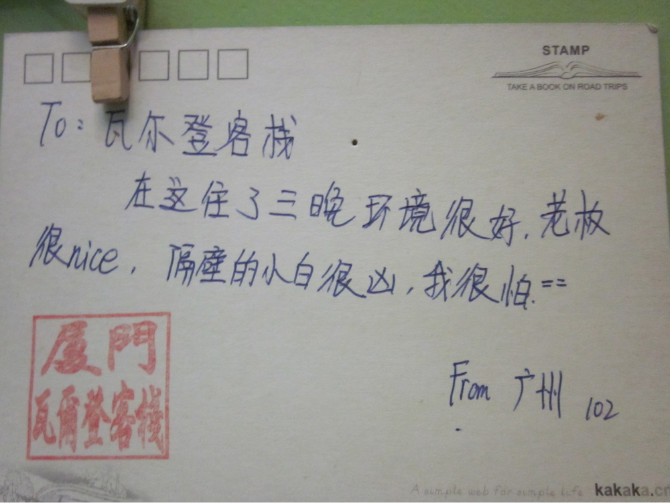 STAMP
TAKE A BOOK ON ROAD TRIPS
To: 瓦尔登客栈
在这住了三晚环境很好,老板
很nice,隔壁的小白很凶,我很怕.==
厦門
瓦爾登客棧
From 广州 102
A simple web for simple life kakaka.c